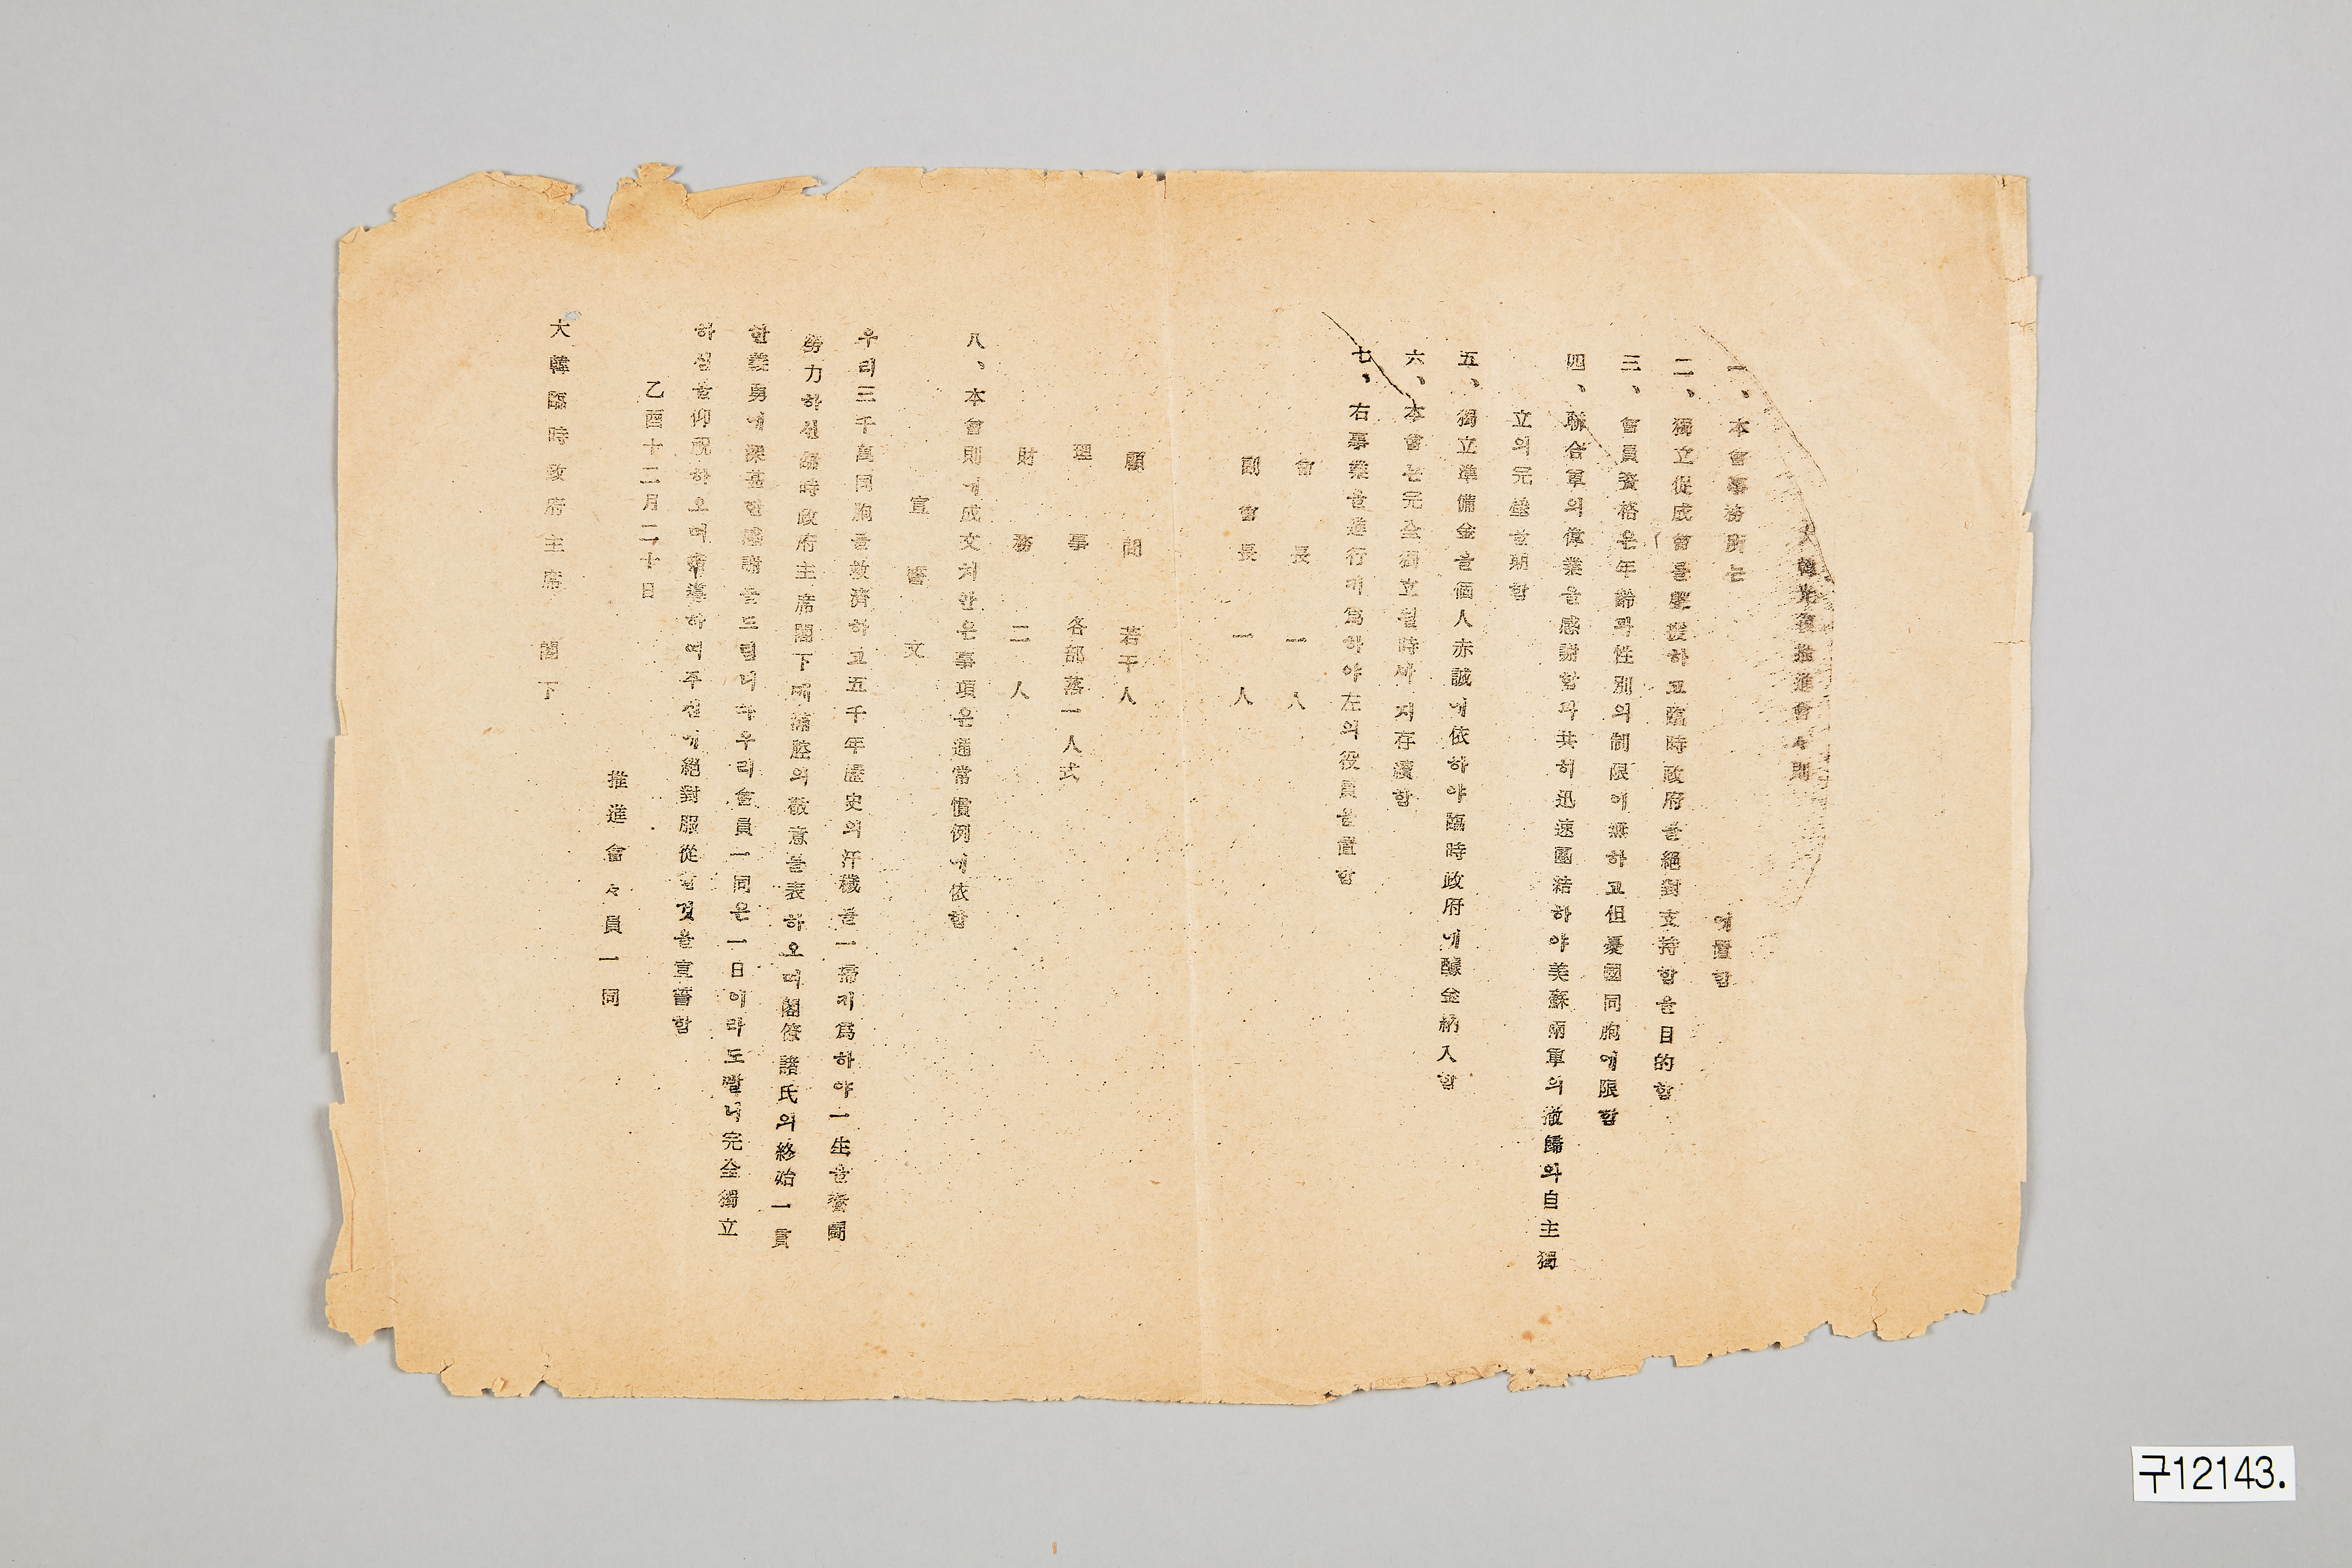 大韓光復推進會々則
一、本會事務所는 에置함
二、獨立促成會를 하고臨時政府를絕對支持함을目的함
三、會員資格은年齡과性別의制限이無하고但憂國同胞에限함
四、聯合軍의偉業을感謝함과共히迅速團結하야美蘇兩軍의撤歸와自主獨
立의元 을期함
五、獨立準備金을個人赤誠에依하야臨時政府에醵金納入함
六、本會는元全獨立될時까지存續함
七、右事業을進行키爲하야左의役員을置함
會長 一人
副會長 一人
顧問 若干人
理事 各部落一人式
財務 二人
八、本會則에成文치안은事項은通常慣例에依함
宣誓文
우리三千萬同胞를救濟하고五千年歷史의汗穢를一掃키爲하야一生을奮鬪
勞力하신臨時政府主席閣下에滿腔의敬意를表하오며閣僚諸氏의終始一貫
한義勇에深甚한感謝를드림니다우리會員一同은一日이라도빨니完全獨立
하심을仰祝하오며 導하여주심에絕對服從할것을宣誓함
乙酉十二月二十日
推進會々員一同
大韓臨時政府主席 閣下
구12143.